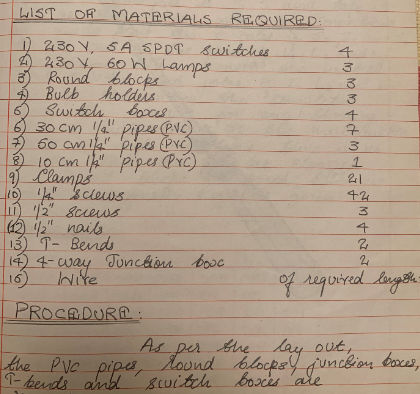 LIST OF MATERIALS REQUIRED:
1) 230V, 5A SPDT switches 4
2) 230V, 60W Lamps 3
3) Round blocks 3
4) Bulb holders 3
5) Switch boxes 4
6) 30cm 1/4" pipes (PVC) 7
7) 60cm 1/4" pipes (PVC) 3
8) 10cm 1/4" pipes (PVC) 1
9) Clamps 21
10) 1/4" screws 42
11) 1/2" screws 3
12) 1/2" nails 4
13) T-Bends 2
14) 4-way Junction box 2
15) Wire of required length
PROCEDURE:
As per the lay out,
the PVC pipes, round blocks, junction boxes,
T-bends and switch boxes are